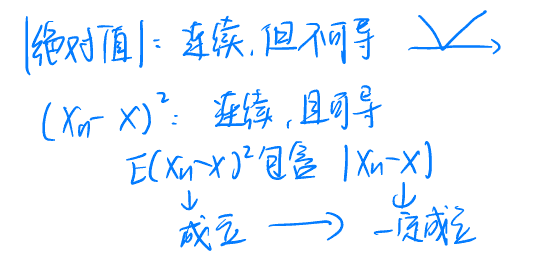 |绝对值|：连续，但不可导
(Xn-X)²：连续，且可导
E(Xn-X)²包含 |Xn-X|
↓ ↓
成立 → 一定成立